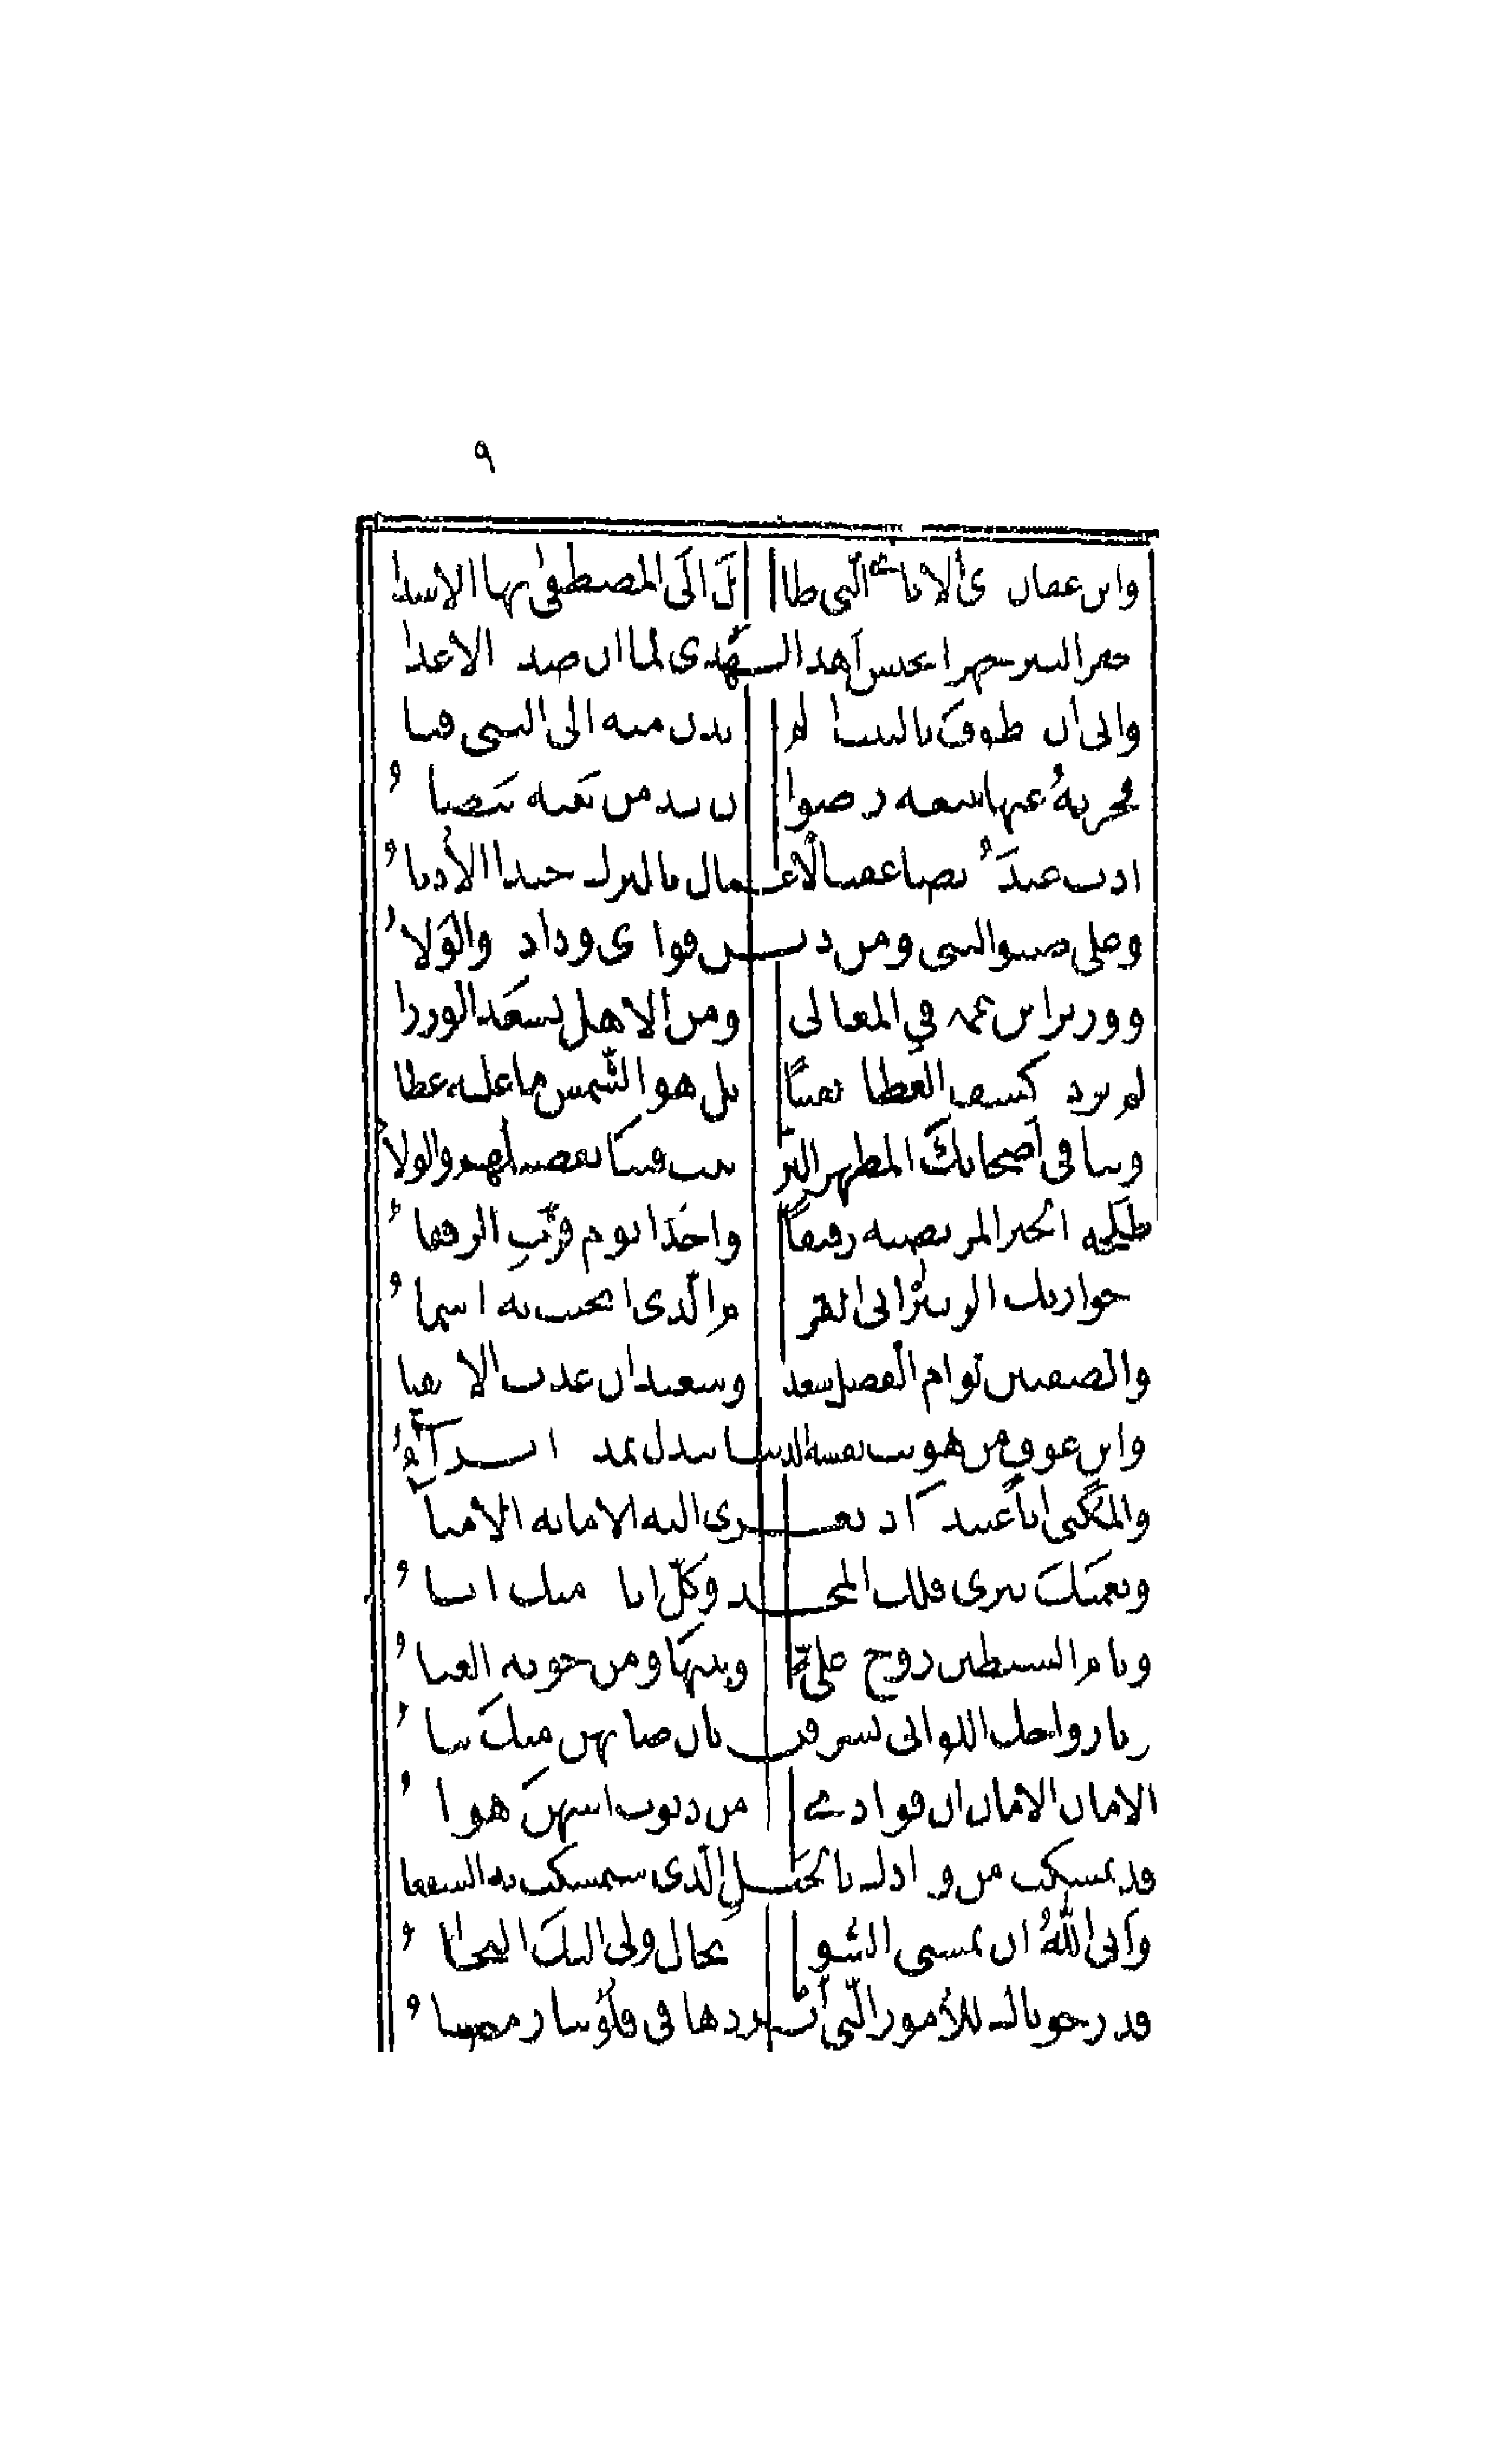 ٩
وابن عفان ذي الايادي التي طا ل الى المصطفى بها الاسدا
حفر البئر جهز الجيش اهدى الهدي لما ان صد الاعدا
وابى ان يطوف بالبيت اذ لم يدن منه الى النبي فنا
فجزته عنها ببيعة رضوا ن يد من نبيه بيضا ء
ادب عنده تضاعفت الاعمال بالترك حبذا الأدبا ء
وعلي صنو النبي ومن دين فوادي وداد والولا ء
ووزير ابن عمه في المعالي ومن الاهل تسعد الوزرا
لم يزد كشف الغطا يقينًا بل هو الشمس ما عليه غطا
وبباقي أصحابك المظهر التر تيب فينا تفضيلهم والولا
طلحة الخير المرتضيه رفيقًا واحدًا يوم فرت الرفقا ء
حواريك الزبير ابي القر م الذي انجبت به اسما ء
والصفيين توام الفضل سعد وسعيد ان عدت الاصفيا
وابن عوف من هونت نفسه الدنيا ببذل يمده اثراء
والمكنى ابا عبيدة اذ يعزى اليه الامانة الامنا
وبعميك نيري فلك المجد وكل اتاه منك اتا ء
وبام السبطين زوج علي وبنيها ومن حوته العبا ء
وبازواجك اللواتي تشرفن بان صانهن منك بنا ء
الامان الامان ان فوادي من ذنوب اتيهن هوا ء
قد تمسكت من ودادك بالحبل الذي استمسكت به الشفعا
وأبى الله ان يمسني السو بحال ولي اليك التجا ء
قد رجوناك للأمور التي أبردها في قلوبنا رمضا ء